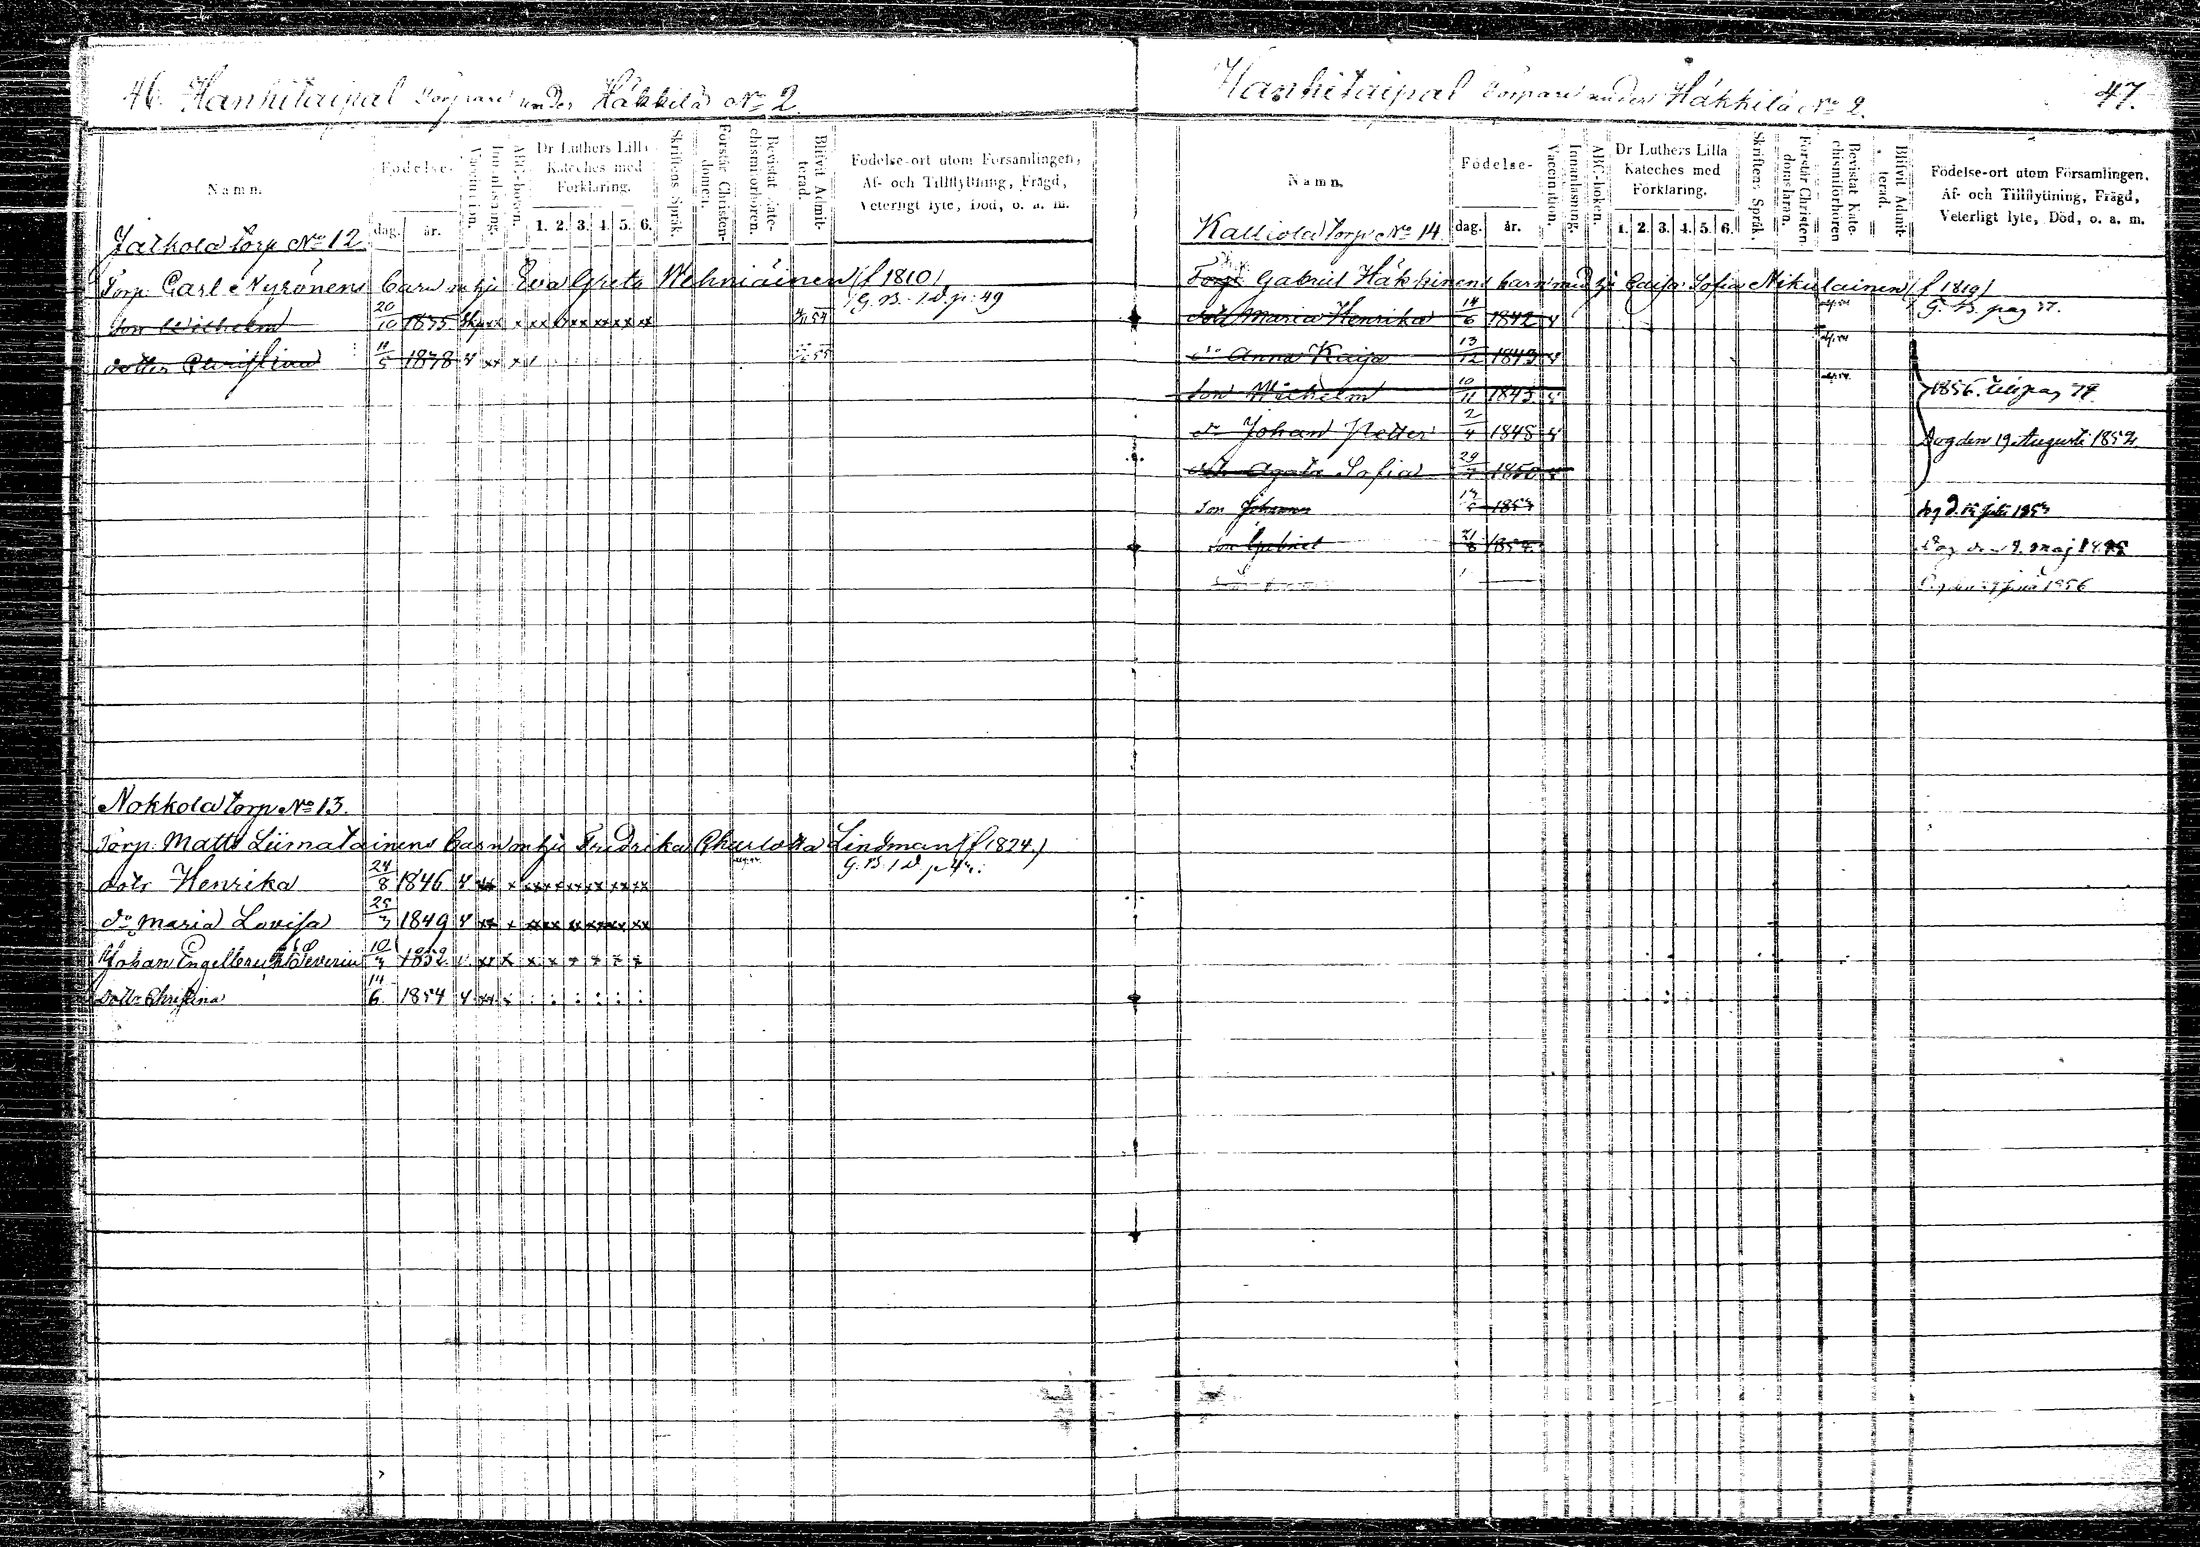 46. Hanhitaipal Torpare under Häkkilä No 2.
Namn.
Födelse-
dag. år.
Vaccination.
Innanläsning.
ABC-boken.
Dr Luthers Lilla Kateches med Förklaring.
1. 2. 3. 4. 5. 6.
Skriftens Språk.
Förstår Christen-domen.
Bevistat Kate-chismiförhören.
Blifvit Admit-terad.
Födelse-ort utom Församlingen,
Af- och Tillflyttning, Frägd,
Veterligt lyte, Död, o. a. m.
Jalkola torp No 12
Torp. Carl Nyrönens barn m hu Eva Greta Wehniäinen (f 1810)
G. B. 1 d. p: 49
Son Wilhelm 20/10 1835
dotter Christina 11/5 1838
Nokkola torp No 13.
Torp. Matts Liimatainens barn m hu Fredrika Charlotta Lindman (f 1824)
G. B. 1 d. p
dotr Henrika 24/8 1846
do Maria Lovisa 25/3 1849
Johan Engelbrecht Severin 10/3 1852
dottr Christina 14/6 1854
Hanhitaipal Torpare under Häkkilä No 2. 47.
Namn.
Födelse-
dag. år.
Vaccination.
Innanläsning.
ABC-boken.
Dr Luthers Lilla Kateches med Förklaring.
1. 2. 3. 4. 5. 6.
Skriftens Språk.
Förstår Christen-domsläran.
Bevistat Kate-chismiförhören
Blifvit Admit-terad.
Födelse-ort utom Församlingen,
Af- och Tillflyttning, Frägd,
Veterligt lyte, Död, o. a. m.
Kalliola torp No 14.
Torp. Gabriel Häkkinens barn med hu Caisa Sofia Nikulainen (f 1819)
G. B. pag
dotr Maria Henrika 14/6 1842
do Anna Kaisa 13/12 1843
Son Wilhelm 10/11 1845
1856. till pag
do Johan Petter 2/4 1848
Dog den 19 Augusti 1852
dotr Agata Sofia 29/7 1850
son Johannes
son Gabriel 21/8